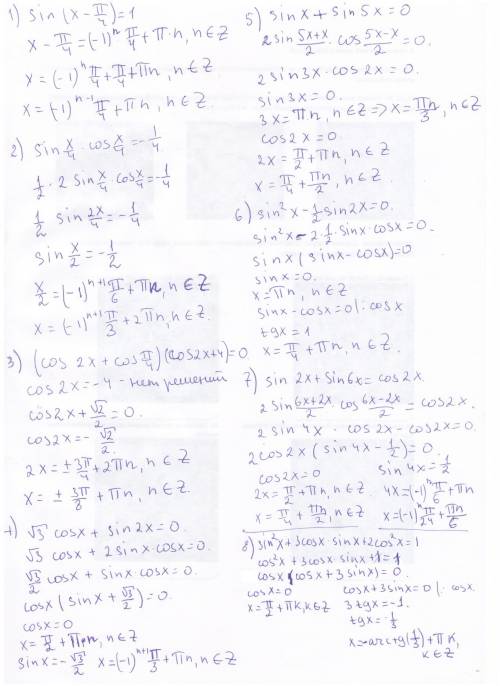 1) sin (x - π/4) = 1
x - π/4 = (-1)ⁿ π/4 + π·n, n∈Z
x = (-1)ⁿ π/4 + π/4 + πn, n∈Z
x = (-1)ⁿ⁻¹ π/4 + πn, n∈Z.
2) sin x/4 · cos x/4 = -1/4
1/2 · 2 sin x/4 · cos x/4 = -1/4
1/2 sin 2x/4 = -1/4
sin x/2 = -1/2
x/2 = (-1)ⁿ⁺¹ π/6 + πn, n∈Z
x = (-1)ⁿ⁺¹ π/3 + 2πn, n∈Z.
3) (cos 2x + cos π/4)(cos2x+4) = 0
cos 2x = -4 - нет решений
cos2x + √2/2 = 0.
cos2x = -√2/2.
2x = ± 3π/4 + 2πn, n∈Z
x = ± 3π/8 + πn, n∈Z.
4) √3 cosx + sin2x = 0.
√3 cosx + 2 sinx·cosx = 0.
√3/2 cosx + sinx·cosx = 0.
cosx (sinx + √3/2) = 0
cosx = 0
x = π/2 + πn, n∈Z
sinx = -√3/2 x = (-1)ⁿ⁺¹ π/3 + πn, n∈Z
5) sinx + sin5x = 0
2 sin 5x+x/2 · cos 5x-x/2 = 0.
2 sin3x · cos2x = 0.
sin3x = 0.
3x = πn, n∈Z => x = πn/3, n∈Z
cos2x = 0.
2x = π/2 + πn, n∈Z
x = π/4 + πn/2, n∈Z.
6) sin²x - 1/2 sin2x = 0.
sin²x - 2·1/2 sinx·cosx = 0.
sinx (sinx - cosx) = 0
sinx = 0.
x = πn, n∈Z
sinx - cosx = 0 |: cosx
tgx = 1
x = π/4 + πn, n∈Z.
7) sin 2x + sin6x = cos2x.
2 sin 6x+2x/2 · cos 6x-2x/2 = cos2x.
2 sin 4x · cos2x - cos2x = 0.
2cos2x (sin4x - 1/2) = 0.
cos2x = 0 sin4x = 1/2
2x = π/2 + πn, n∈Z. 4x = (-1)ⁿ π/6 + πn
x = π/4 + πn/2, n∈Z. x = (-1)ⁿ π/24 + πn/6
8) sin²x + 3cosx·sinx + 2cos²x = 1
cos²x + 3cosx·sinx + 1 = 1
cosx (cosx + 3sinx) = 0.
cosx = 0 cosx + 3sinx = 0 |: cosx.
x = π/2 + πk, k∈Z 3tgx = -1.
tgx = -1/3
x = -arctg(1/3) + πk,
k∈Z